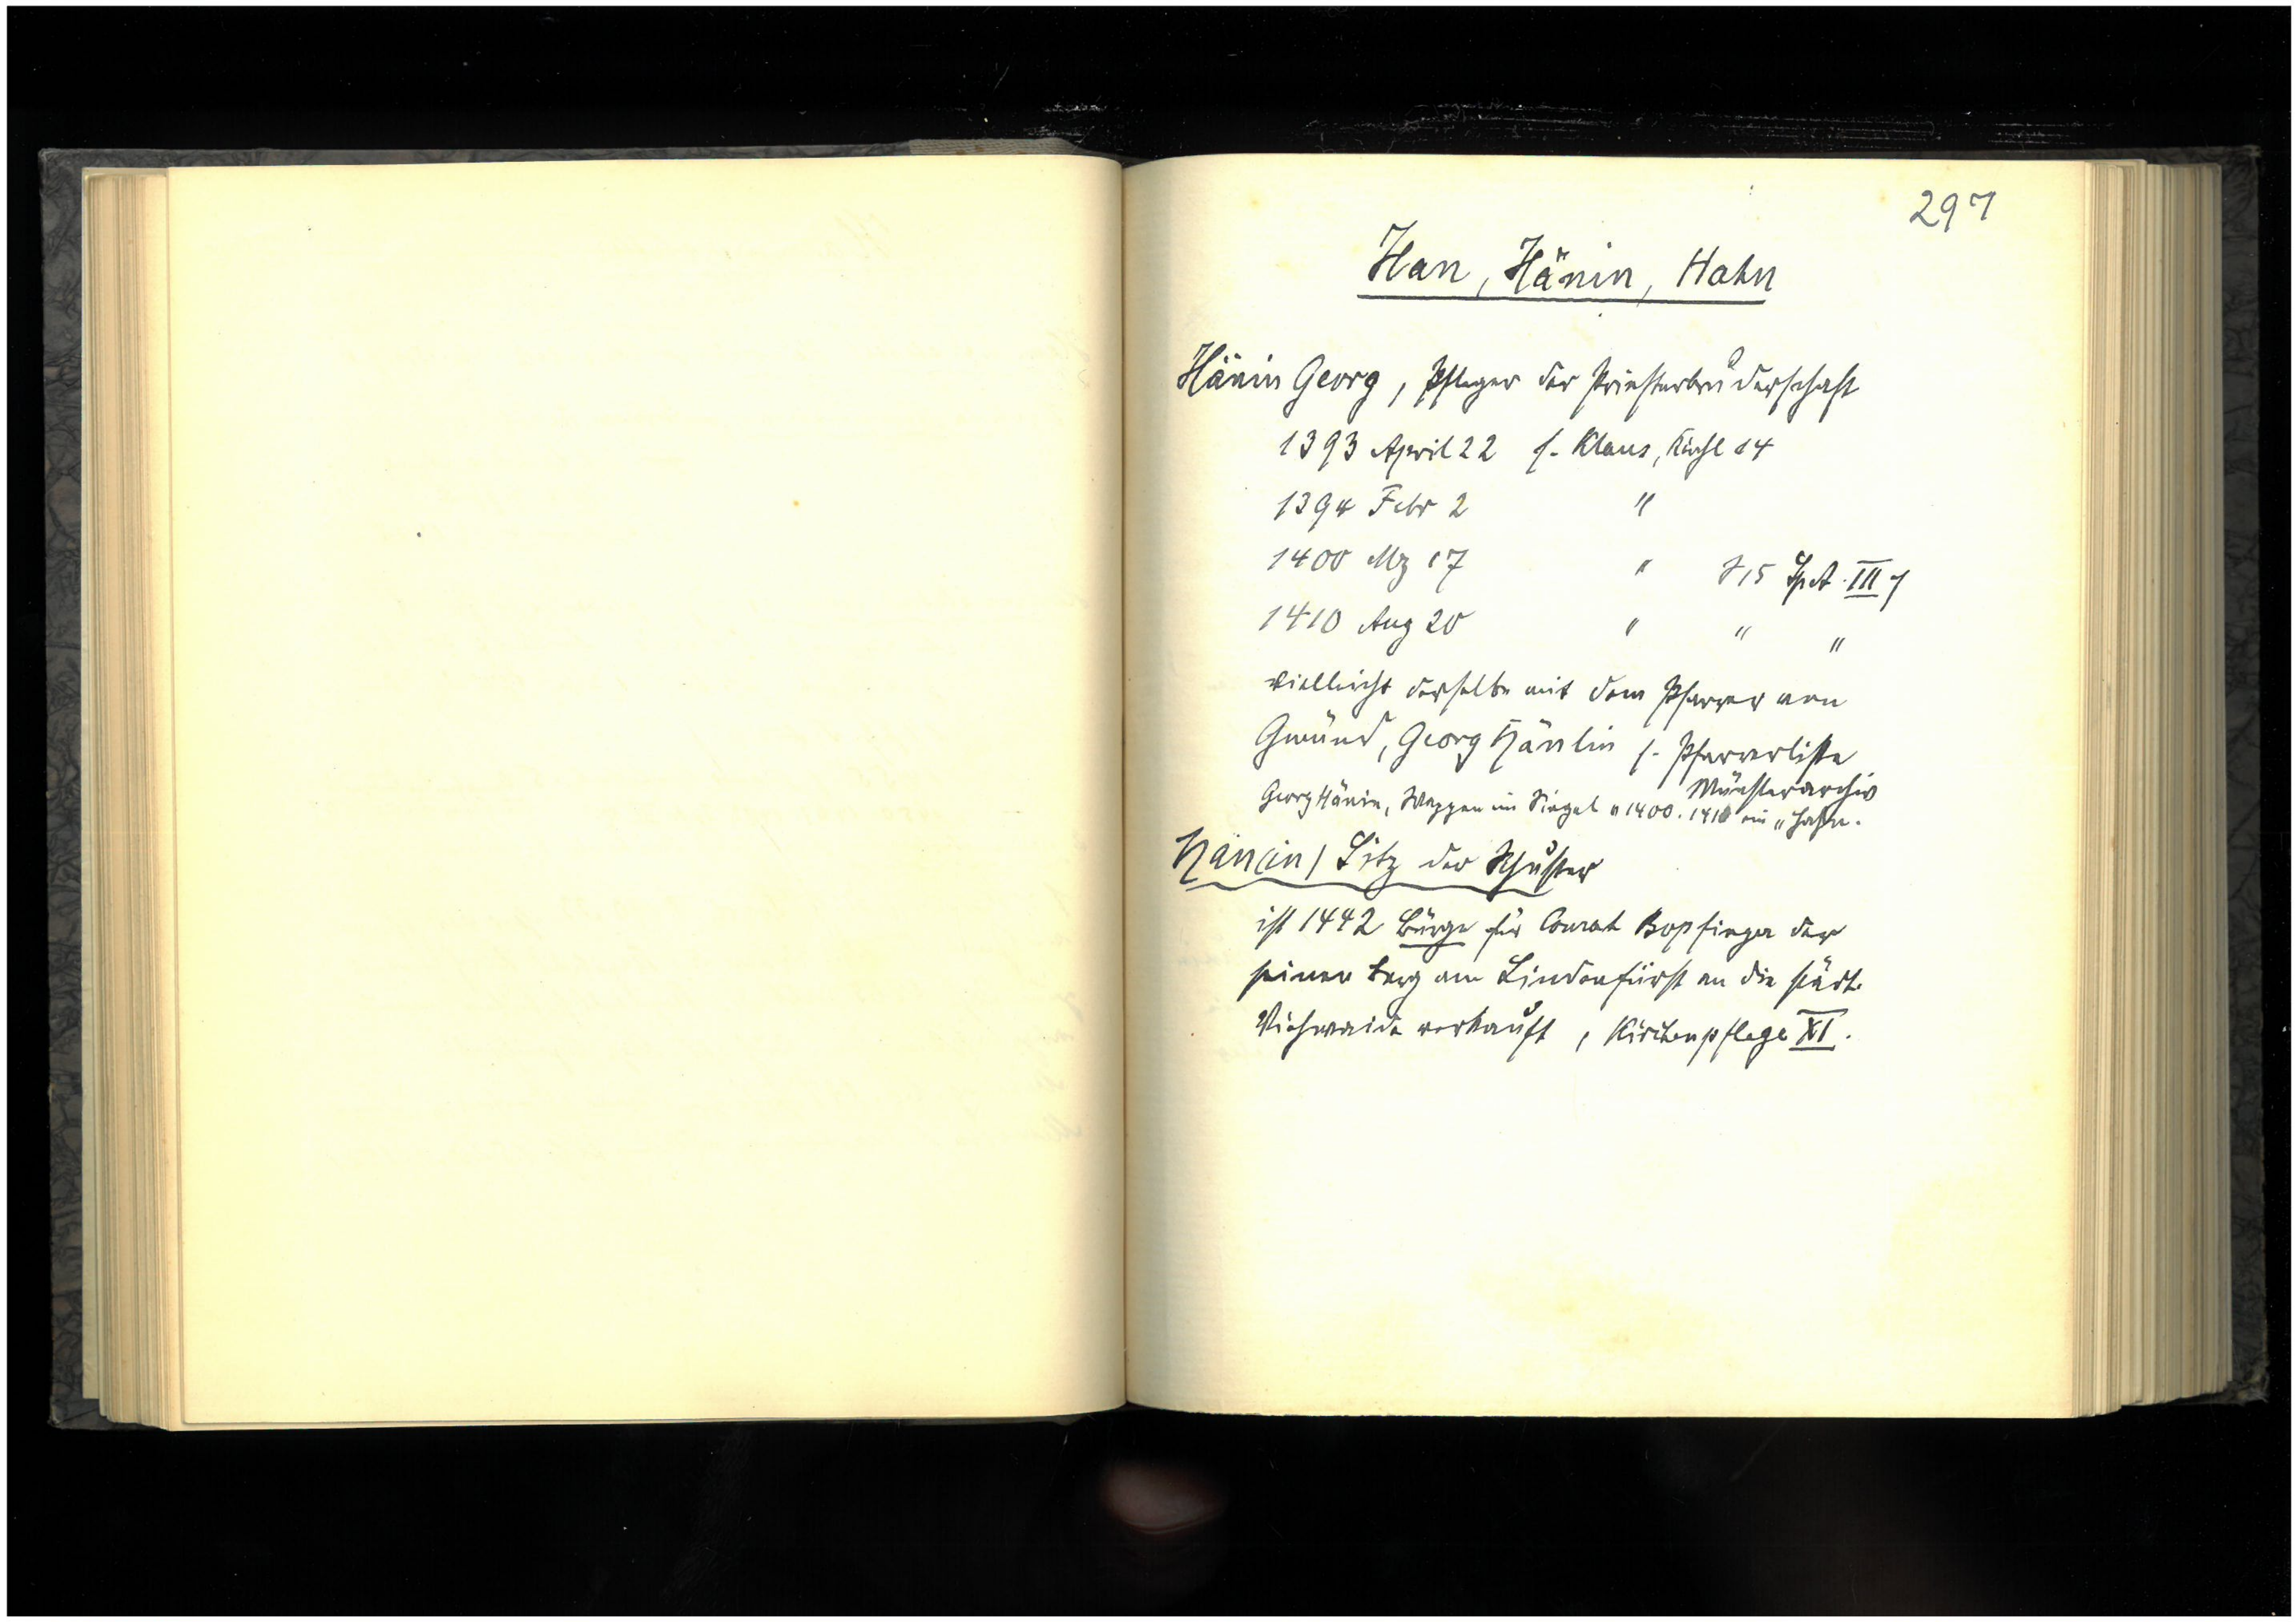 297
Han, Hänin, Hahn
Hänin Georg, Pfleger der Priesterbruderschaft
1393 April 22 s. Klaus, Kirchl 14
1394 Febr 2 "
1400 Mz 17 " S 15 SpA. III 7
1410 Aug 20 " " "
vielleicht derselbe mit dem Pfarrer von
Gmünd, Georg Hänlin s. Pfarrerliste
Münsterarchiv
Georg Hänin, Wappen im Siegel v 1400. 1410 ein "Hahn.
Hänin, Litz der Schuster
ist 1442 Bürge für Conrat Bopfinger der
seinen Berg am Lindenfürst an die städt.
Viehweide verkauft, Kirchenpflege XI.